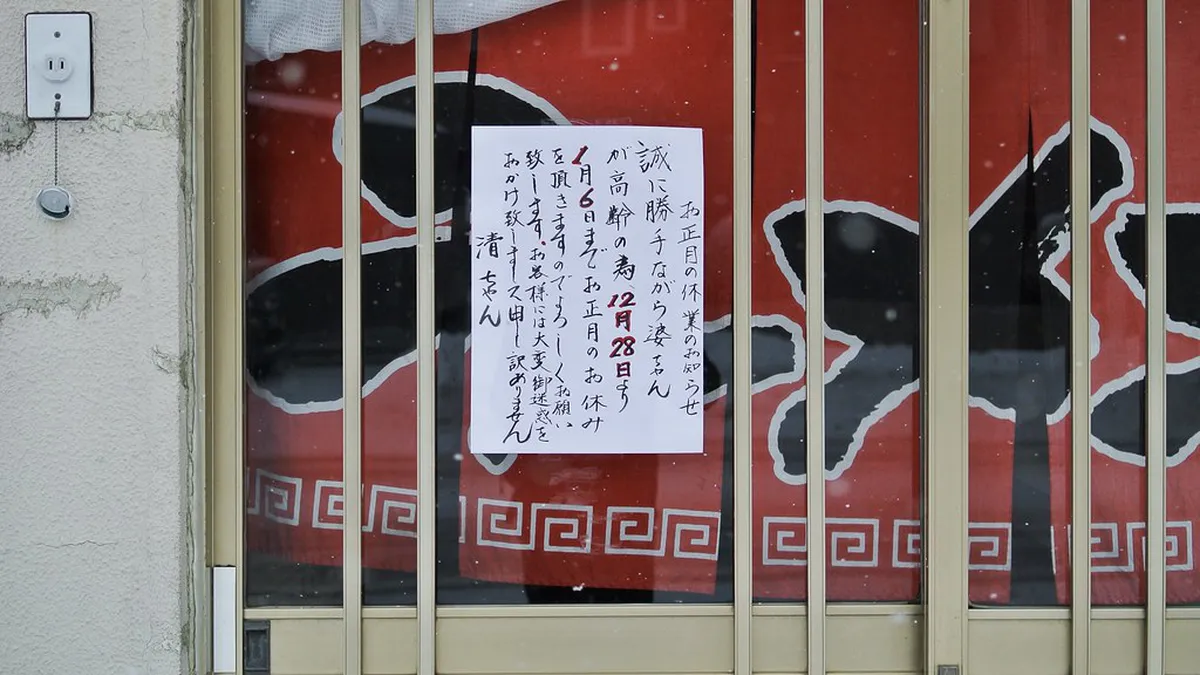 お正月の休業のお知らせ
誠に勝手ながら婆ちゃん
が高齢の為、12月28日より
1月6日までお正月のお休み
を頂きますのでよろしくお願い
致します。お客様には大変御迷惑を
おかけ致しますス申し訳ありません
清ちゃん